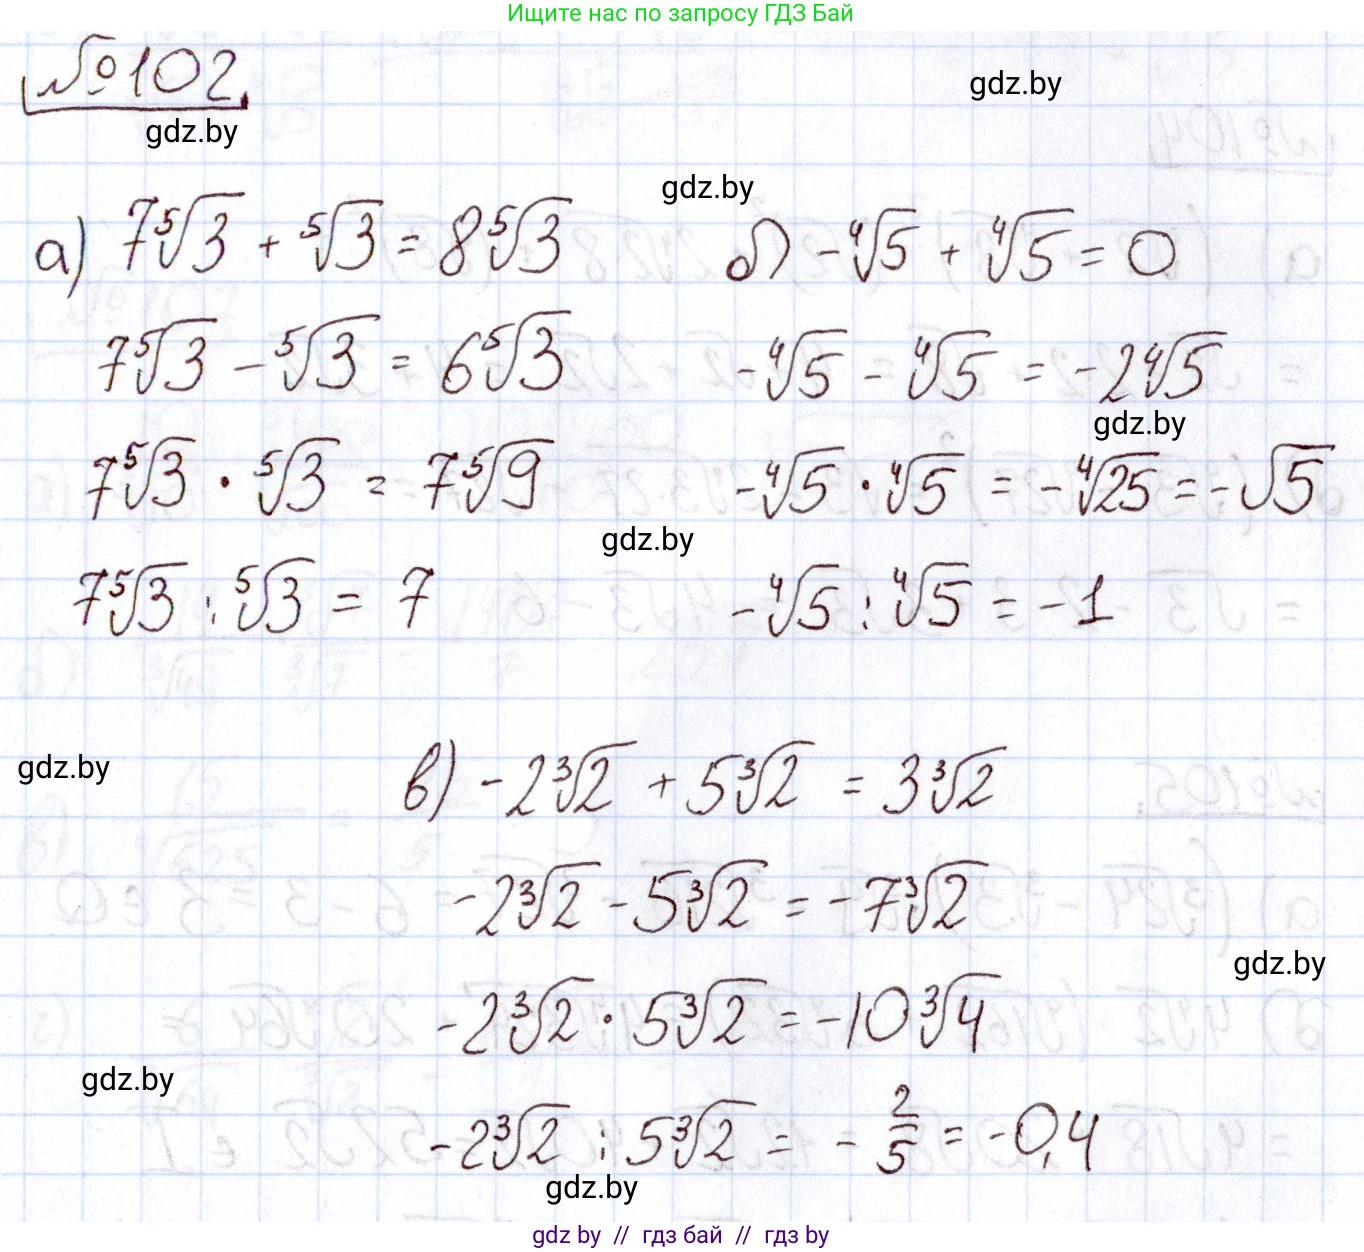 Ищите нас по запросу ГДЗ Бай
№102
gdz.by
gdz.by
gdz.by
а) 7⁵√3 + ⁵√3 = 8⁵√3
7⁵√3 - ⁵√3 = 6⁵√3
7⁵√3 · ⁵√3 = 7⁵√9
7⁵√3 : ⁵√3 = 7
б) -⁴√5 + ⁴√5 = 0
-⁴√5 - ⁴√5 = -2⁴√5
gdz.by
-⁴√5 · ⁴√5 = -⁴√25 = -√5
gdz.by
-⁴√5 : ⁴√5 = -1
gdz.by
в) -2³√2 + 5³√2 = 3³√2
-2³√2 - 5³√2 = -7³√2
gdz.by
-2³√2 · 5³√2 = -10³√4
gdz.by
-2³√2 : 5³√2 = -2/5 = -0,4
gdz.by
gdz by // гдз бай // гдз by